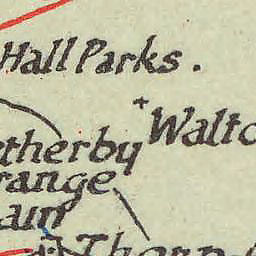 Hall Parks.
Walto
etherby
range
aun
Thorp